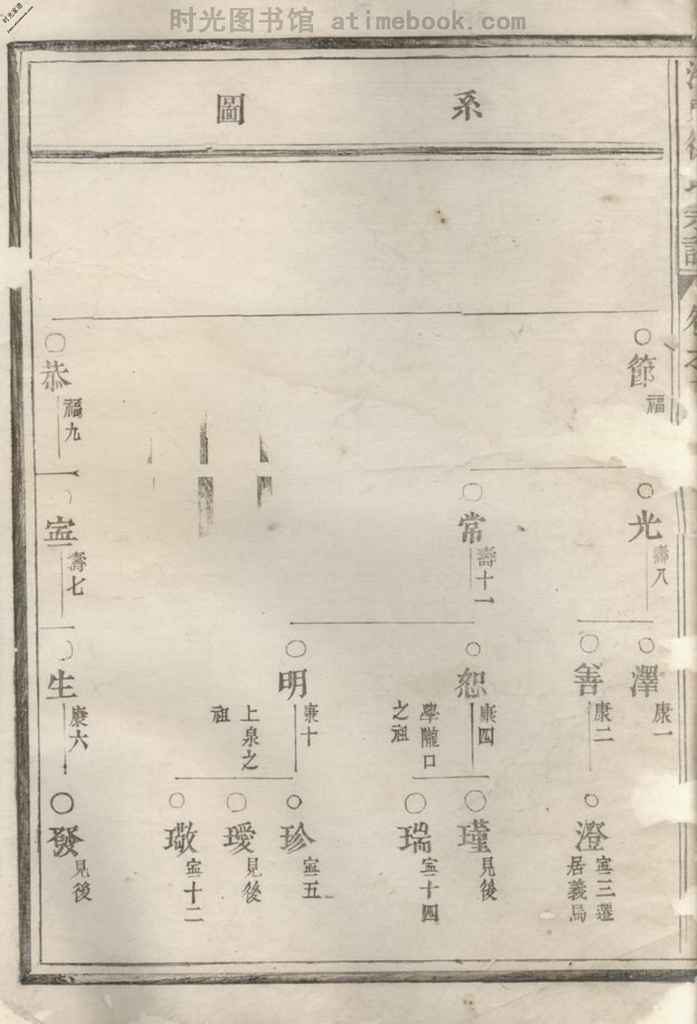 时光图书馆 atimebook.com
系圖
節
福
光
壽八
澤
康一
善
康二
澄
寍三遷
居義烏
常
壽十一
恕
康四
學隴口
之祖
瑾
見後
瑞
寍十四
明
康十
上泉之
祖
珍
寍五
璦
見後
璥
寍十二
恭
福九
寍
壽七
生
康六
發
見後